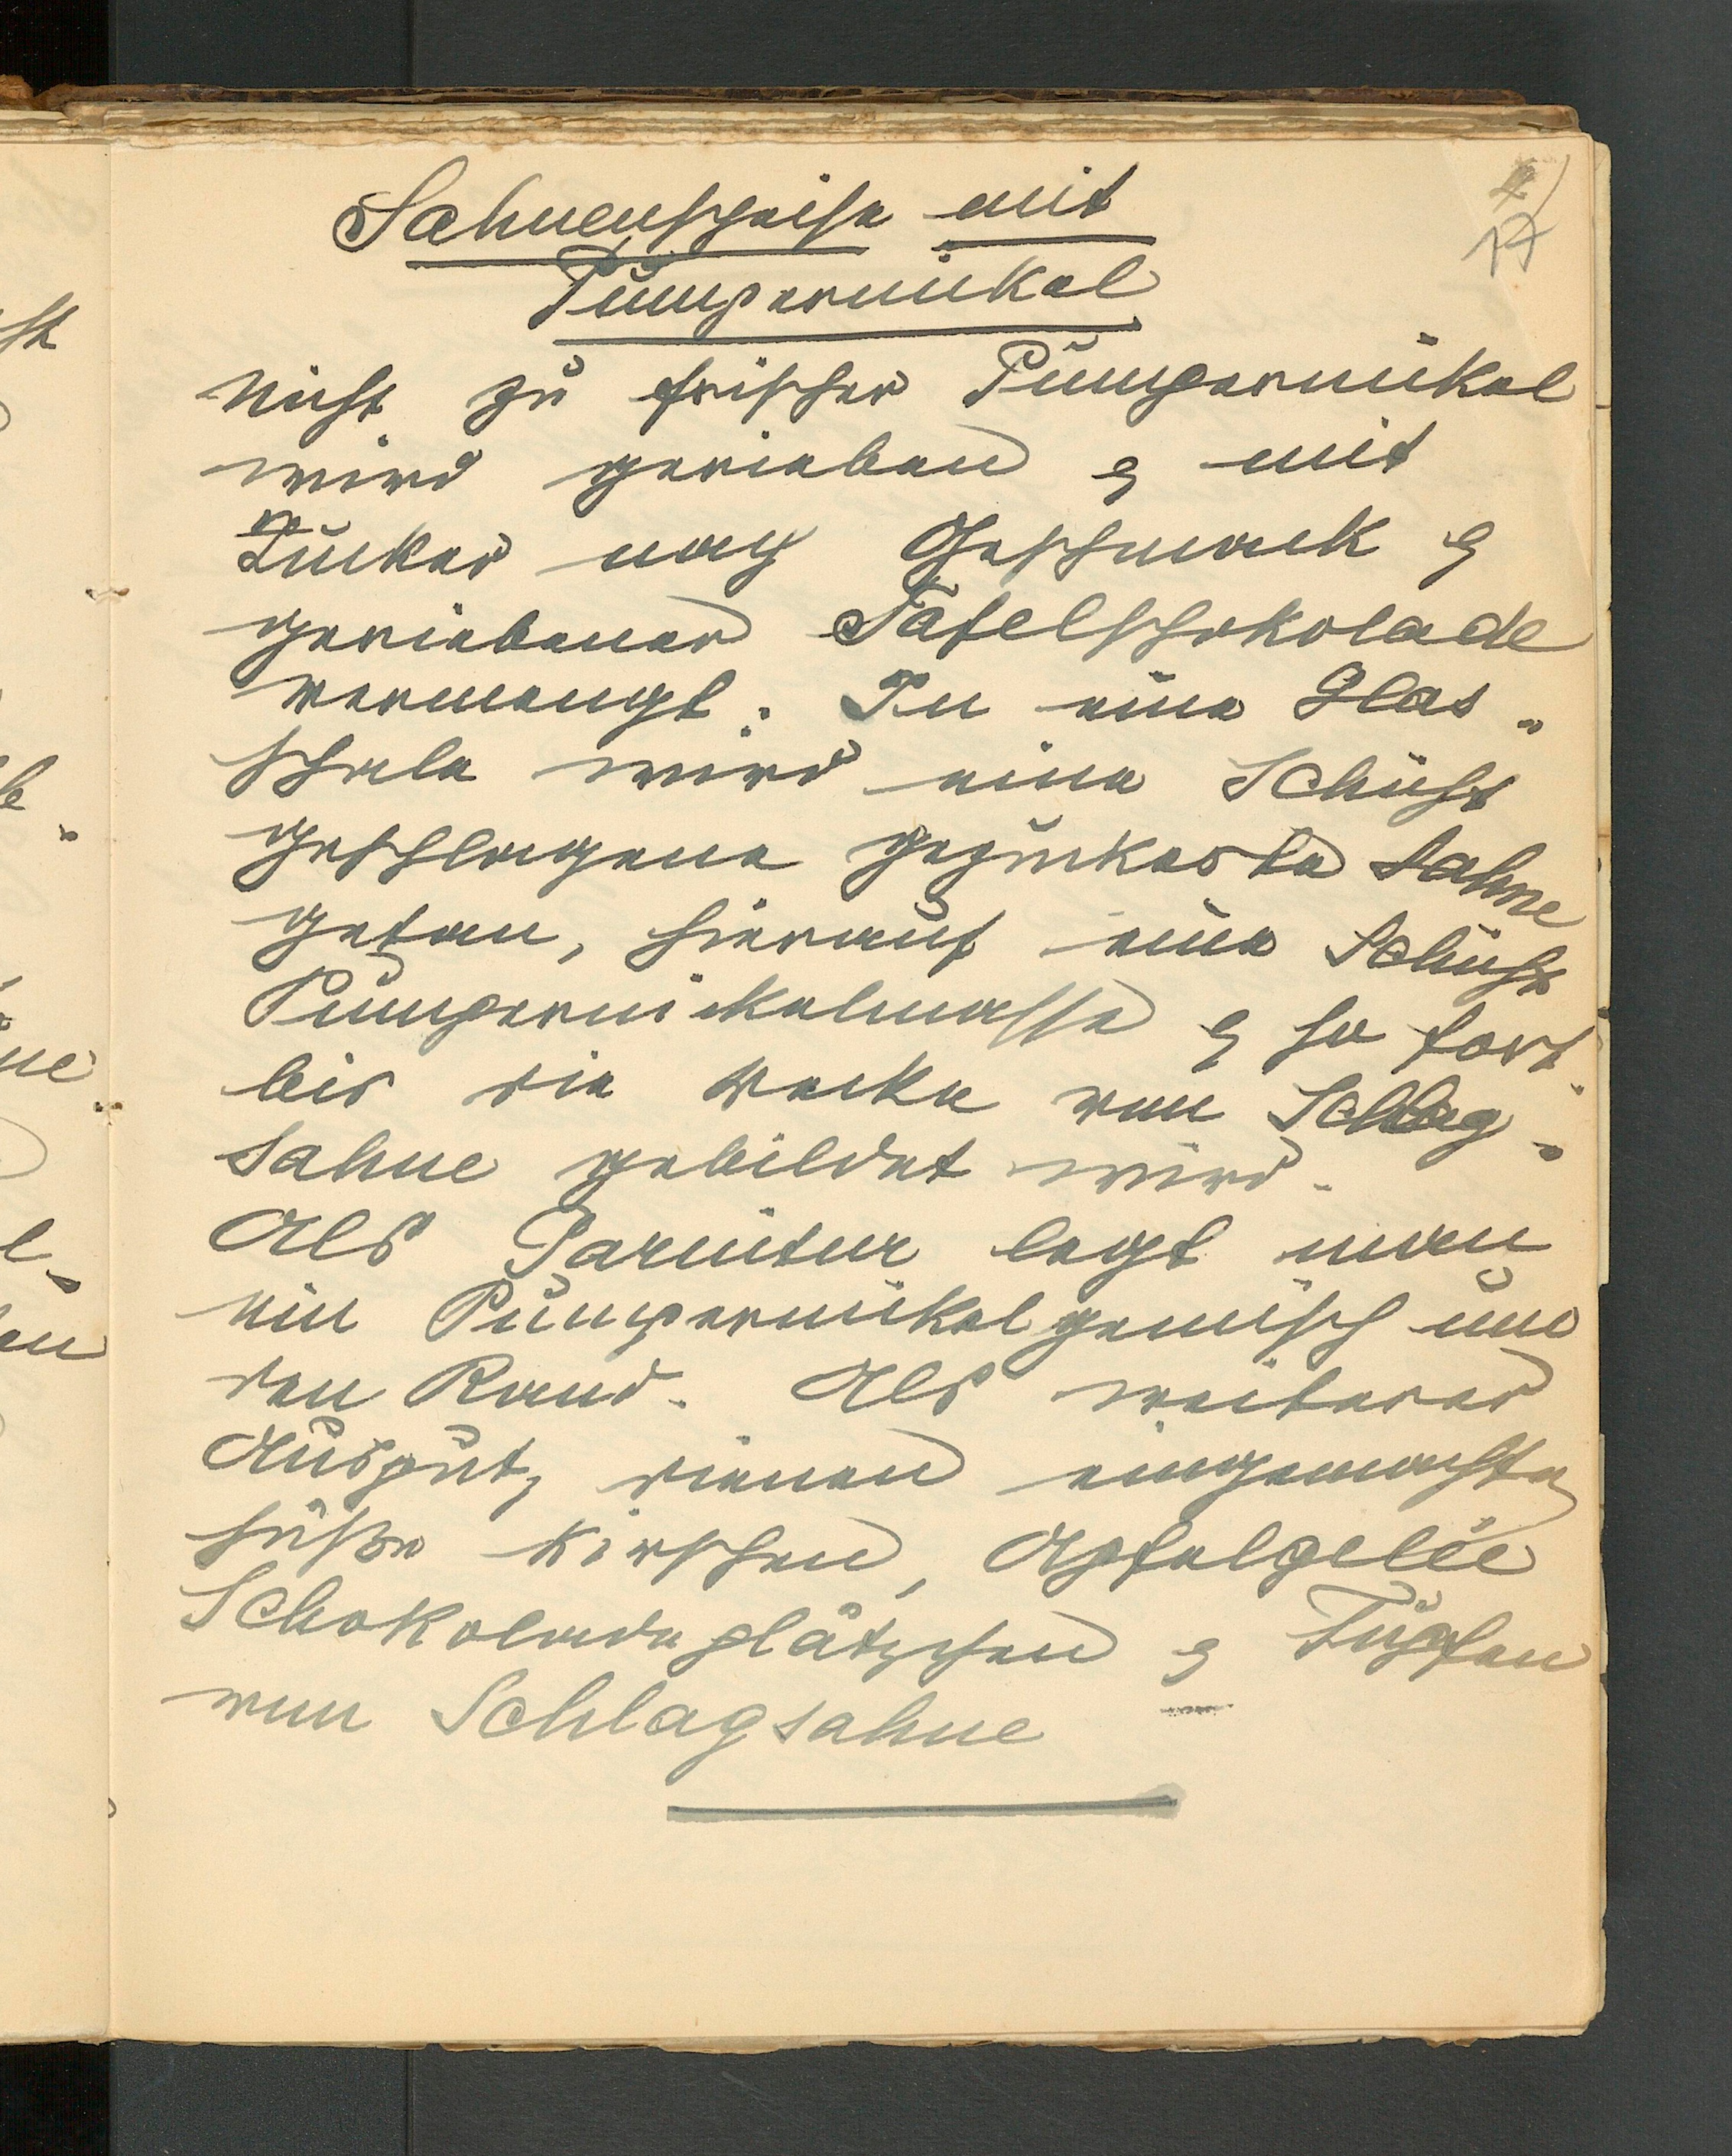 17
Sahnenspeise mit
Pumpernickel
Nicht zu frischer Pumpernickel
wird gerieben & mit
Zucker nach Geschmack &
geriebener Tafelschokolade
vermengt. In eine Glas-
schale wird eine Schicht
geschlagene gezuckerte Sahne
getan, hierauf eine Schicht
Pumpernickelmasse & so fort.
bis die Decke von Schlag-
sahne gebildet wird.
Als Garnitur legt man
ein Pumpernickelgemisch um
den Rand. Als weiterer
Ausputz dienen eingemachte
süße Kirschen, Apfelgelée
Schokoladeplätzchen & Tupfen
von Schlagsahne